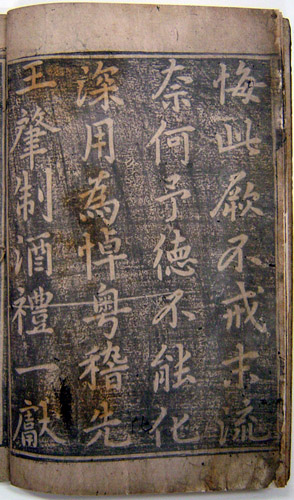 悔此厥不戒末流
奈何予徳不能化
深用為悼粤稽先
王肇制酒禮一獻